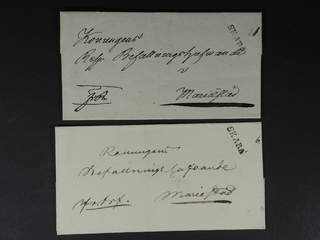 SKARA
Konungens
Resp. Befallningshafwande
i
Mariestad
SKARA
Konungens
Befallningshafvande
Mariestad